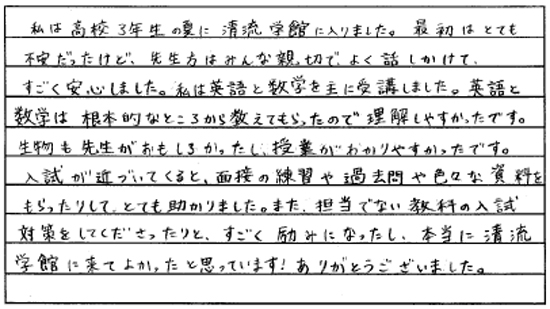 私は高校3年生の夏に清流学館に入りました。最初はとても
不安だったけど、先生方はみんな親切で、よく話しかけて、
すごく安心しました。私は英語と数学を主に受講しました。英語と
数学は根本的なところから教えてもらったので理解しやすかったです。
生物も先生がおもしろかったし、授業がわかりやすかったです。
入試が近づいてくると、面接の練習や過去問や色々な資料を
もらったりして、とても助かりました。また、担当でない教科の入試
対策をしてくださったりと、すごく励みになったし、本当に清流
学館に来てよかったと思っています!ありがとうございました。